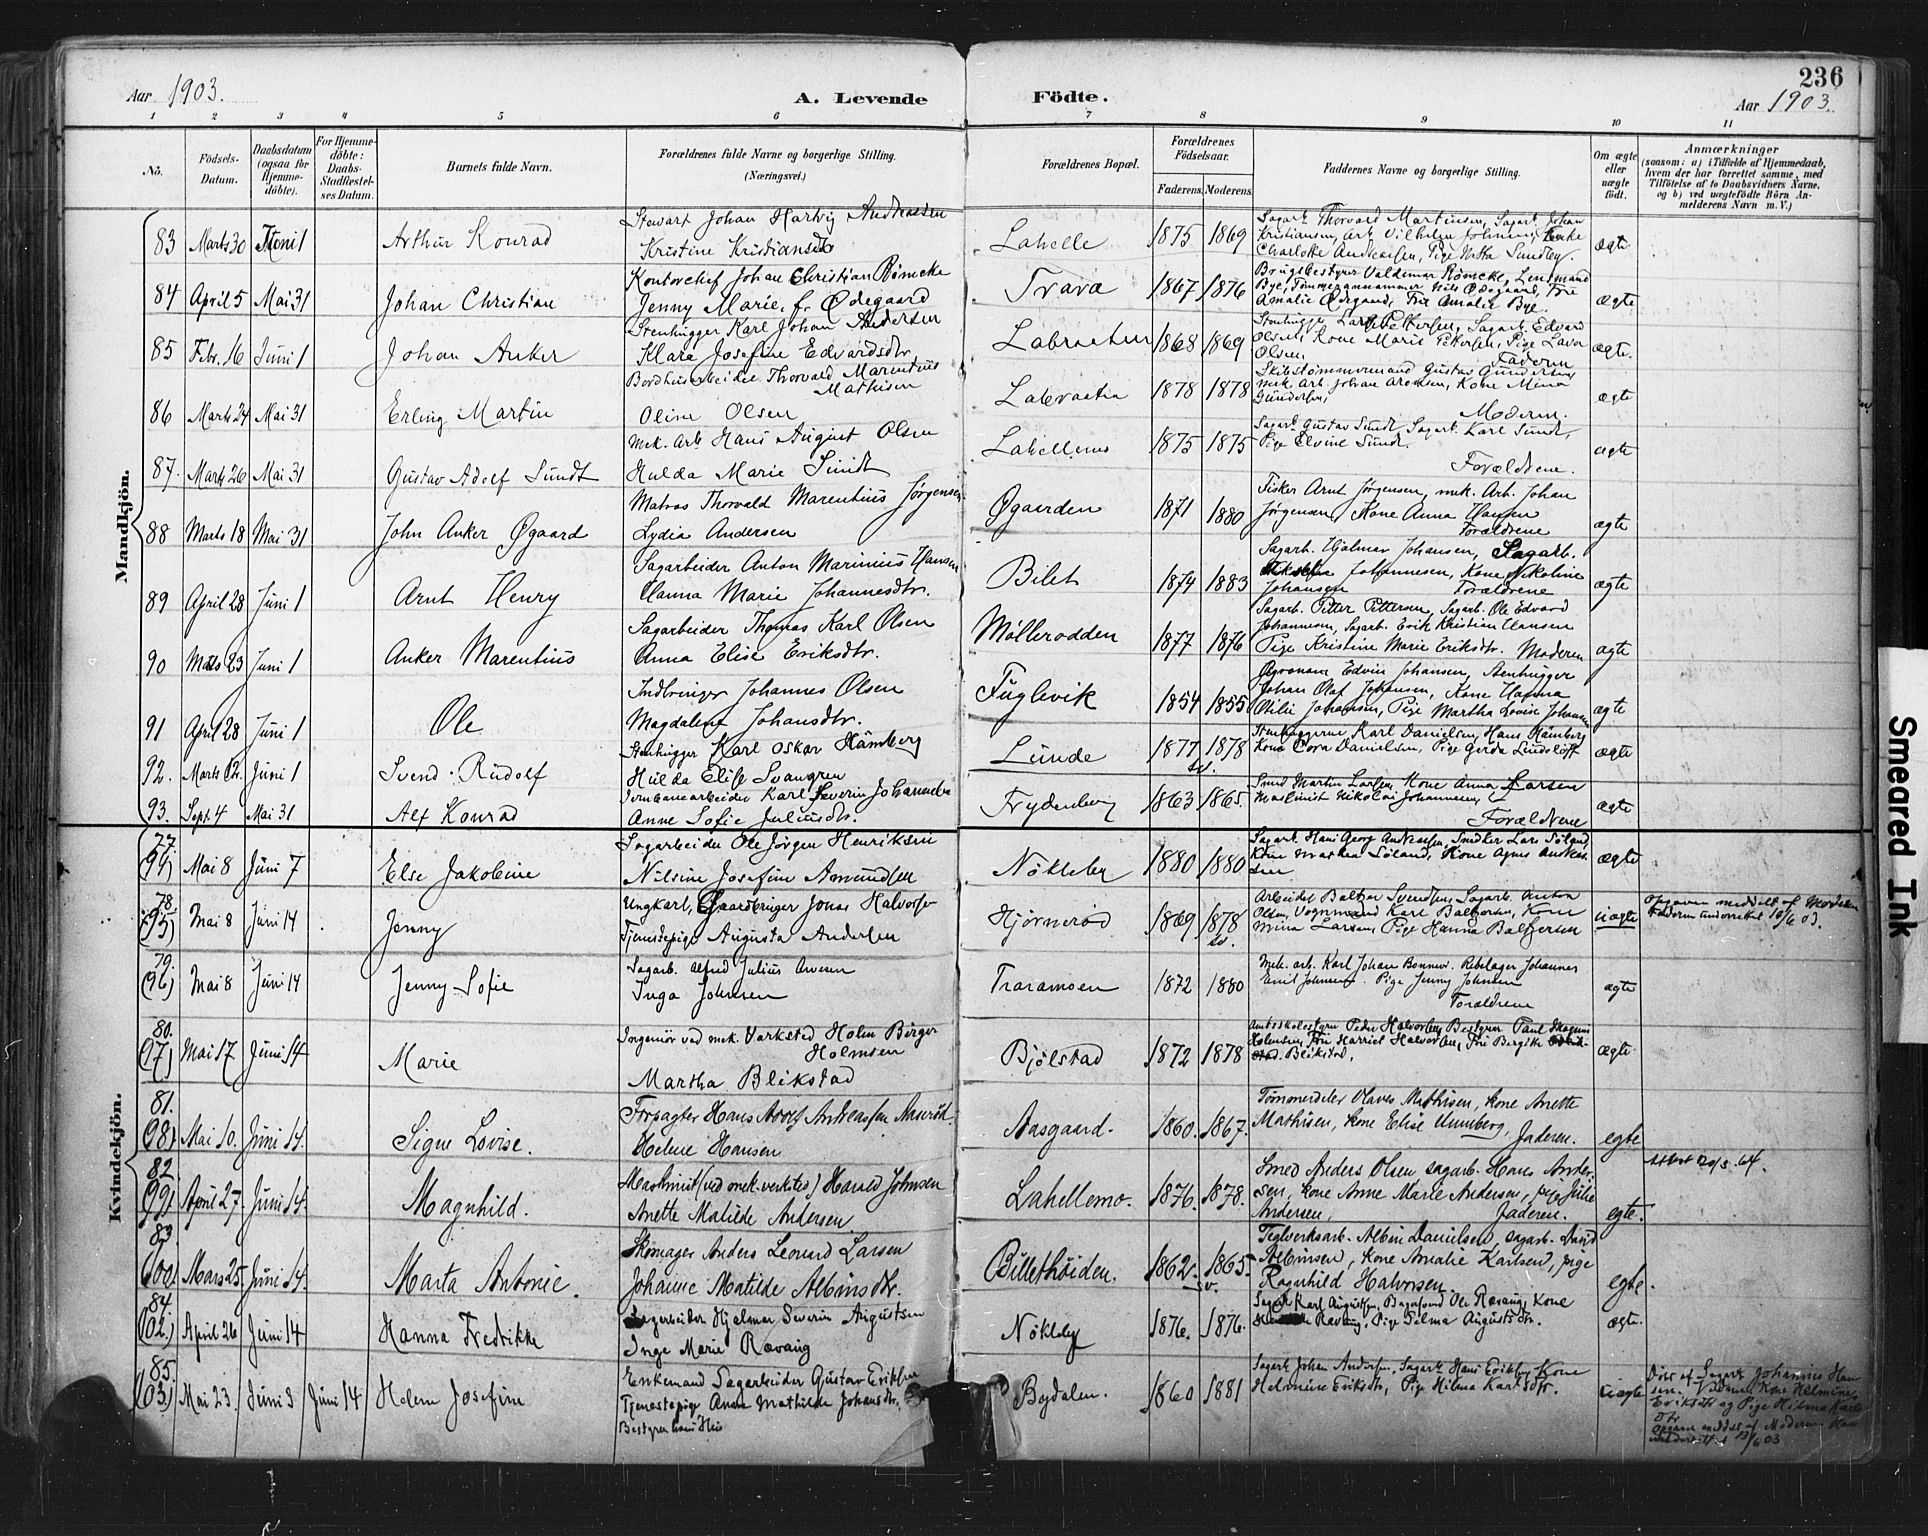 236
Aar 1903.
A. Levende Födte.
Aar 1903.
1 2 3 4 5 6 7 8 9 10 11
No.
Födsels-Datum.
Daabsdatum (ogsaa for Hjemme-döbte).
For Hjemme-döbte: Daabs-Stadfæstel-ses Datum.
Barnets fulde Navn.
Forældrenes fulde Navne og borgerlige Stilling.
(Næringsvei.)
Forældrenes Bopæl.
Forældrenes Födselsaar.
Faderens. Moderens.
Faddernes Navne og borgerlige Stilling.
Om ægte eller uægte födt.
Anmærkninger
(saasom: a) i Tilfælde af Hjemmedaab, hvem der har forrettet samme, med Tilföielse af to Daabsvidners Navne, og b) ved uægtefödte Börn An-melderens Navn m. V.)
Mandkjön.
83 Marts 30 Juni 1 Arthur Konrad
Stewart Johan Hartvig Andreassen
Kristine Kristiansdtr
Lahelle 1875 1869
Sagarb. Thorvald Martinsen, Sagarb. Johan
ægte
84 April 5 Mai 31 Johan Christian
Kontorchef Johan Christian Römcke
Jenny Marie, f. Ødegaard
Trara 1867 1876
Brugsbestyrer Valdemar Römcke, Lensmand
Bye, Tømmerannammer Nils Ødegaard, Frk
Amalie Ødegaard, Frk Amalie Bye.
ægte
85 Febr. 16 Juni 1 Johan Anker
Stenhugger Karl Johan Andersen
Klara Josefine Edvardsdtr.
Labraaten 1868 1869
Olsen, Kone Marie Pettersen, Pige Lava
Olsen Faderen
ægte.
86 Marts 24 Mai 31 Erling Martin
Bordhusarbeider Thorvald Marentius
Mathisen
Oline Olsen
Labraaten 1878 1878
Skibstømmermand Gustav Gundersen,
mek. Arb. Johan Aronsen, Kone Mina
Gundersen, Moderen.
ægte
87. Marts 26 Mai 31 Gustav Adolf Sundt
Mek. Arb Hans August Olsen
Hulda Marie Sundt
Lahellemo 1875 1875
Sagarb. Gustav Sundt, Sagarb. Karl Sundt,
Pige Elvine Sundt.
Forældrene.
ægte
88 Marts 18 Mai 31 John Anker Øgaard
Matros Thorvald Marentius Jörgensen
Lydia Andersen
Øgaarden 1871 1880
Fisker Arnt Jörgensen, mek. Arb. Johan
Jörgensen, Kone Anna Hansen
Forældrene
ægte
89 April 28 Juni 1 Arnt Henry
Sagarbeider Anton Marinius Hansen
Hanna Marie Johannesdtr.
Bilet 1874 1883
Sagarb. Hjalmar Johansen, Sagarb.
Johannesen, Kone Nikoline
Johansen Forældrene
ægte
90 Marts 23 Juni 1 Anker Marentius
Sagarbeider Thomas Karl Olsen
Anna Elise Eriksdtr.
Møllerodden 1877 1876
Sagarb. Petter Pettersen, Sagarb. Ole Edvard
Johannesen, Sagarb. Erik Kristian Hansen
Pige Kristine Marie Eriksdtr. Moderen
ægte
91 April 28 Juni 1 Ole
Indbringer Johannes Olsen
Magdalene Johansdtr.
Fuglevik 1854 1855
Agronom Edvin Johansen, Stenhugger
Johan Olaf Johansen, Kone Hanna
Otilie Johansen, Pige Martha Lovise Johansen
ægte
92. Marts 12. Juni 1 Svend Rudolf
Stenhugger Karl Oskar Hämberg
Hulda Elise Svangren
Lunde 1877 1878
sv.
Stenhuggerne Karl Danielsen, Hans Hämberg
Kone Cora Danielsen, Pige Gerda Lindslöff
ægte
93. Sept. 4 Mai 31 Alf Konrad
Jernbanearbeider Karl Severin Johannesen
Anne Sofie Juliusdtr.
Frydenberg 1863 1865.
Smed Martin Larsen, Kone Anna Larsen
Maskinist Nikolai Johannesen,
Forældrene
ægte
Kvindekjön.
77
(94) Mai 8 Juni 7 Else Jakobine
Sagarbeider Ole Jörgen Henriksen
Nilsine Josefine Amundsen
Nökleby 1880 1880
Sagarb. Hans Georg Andreassen, Snedker Lars Söland,
Kone Mathea Söland, Kone Agnes Andreas-
sen
ægte
78.
(95) Mai 8 Juni 14 Jenny
Ungkarl, Gaardbruger Jonas Halvorsen
Tjenestepige Augusta Andersen
Hjørnerød 1869 1878
sv.
Arbeider Baltzer Svendsen, Sagarb. Anton
Olsen, Vognmand Karl Baltzersen, Kone
Mina Larsen, Pige Hanna Baltzersen
uægte
Opgaven meddelt af Moderen
Faderen underrettet 10/6 03.
79.
(96) Mai 8 Juni 14 Jenny Sofie
Sagarb. Alfred Julius Arvesen
Inga Johnsen
Traramoen 1872 1880
Mek. arb. Karl Johan Bonnevi. Rebslager Johannes
Emil Johnsen. Pige Jenny Johnsen
Forældrene
ægte
80.
(97) Mai 17 Juni 14 Marie
Ingeniör ved mek. Værksted Holm Birger
Holmsen
Martha Blikstad
Bjölstad 1872 1878
Amtsskolestyrer Peder Halvorsen, Bestyrer Paul
Holmsen, Fru Harriet Halvorsen, Frk Bergithe
Blikstad,
ægte
81.
(98) Mai 10. Juni 14. Signe Lovise.
Forpagter Hans Adolf Andreassen Aaseröd.
Helene Hansen
Aasgaard. 1860. 1867.
Tömmerdeler Olaves Mathisen, kone Anette
Mathisen, kone Elise Unneberg, Faderen.
egte
82
(99) April 27. Juni 14. Magnhild.
Maskinist (ved mek. verksted) Harald Johnsen
Anette Matilde Andersen
Lahellemo. 1876. 1878.
Smed Anders Olsen sagarb. Hans Ander-
sen, kone Anne Marie Andersen, pige Julie
Andersen, Faderen.
egte.
83.
(100) Mars 25. Juni 14. Marta Antonie.
Skomager Anders Leonard Larsen
Johanne Matilde Albinsdtr.
Billethöiden. 1862. 1865.
sv.
Teglverksarb. Albin Danielsen, sagarb. David
Albinsen, kone Amalie Karlsen, pige
Ragnhild Halvorsen.
egte.
84.
(102.) April 26 Juni 14 Hanna Fredrikke
Sagarbeider Hjalmar Severin Augustsen
Inge Marie Ravang
Nökleby 1876. 1876.
Sagarb Karl Augustsen, Ole Ravang, Kone
Ravang, Pige Selma Augustsdtr.
ægte.
85.
(103) Mai 23. Juni 3 Juni 14 Helene Josefine
Enkemand Sagarbeider Gustav Eriksen
Tjenestepige Anna Mathilde Johansdtr,
Bydalen. 1860 1881
Sagarb Johan Andersen, Sagarb Hans Eriksen, Kone
Helmine Eriksdtr, Pige Hilma Karlsdtr.
uægte
Döbt af Sagarb Johannes Han
sen. Vidner, Kone Helmine
Eriksdtr og Pige Hilma Karls
dtr
Opgave meddelt af Moderen. Han
underrettet 13/6 03
Smeared Ink